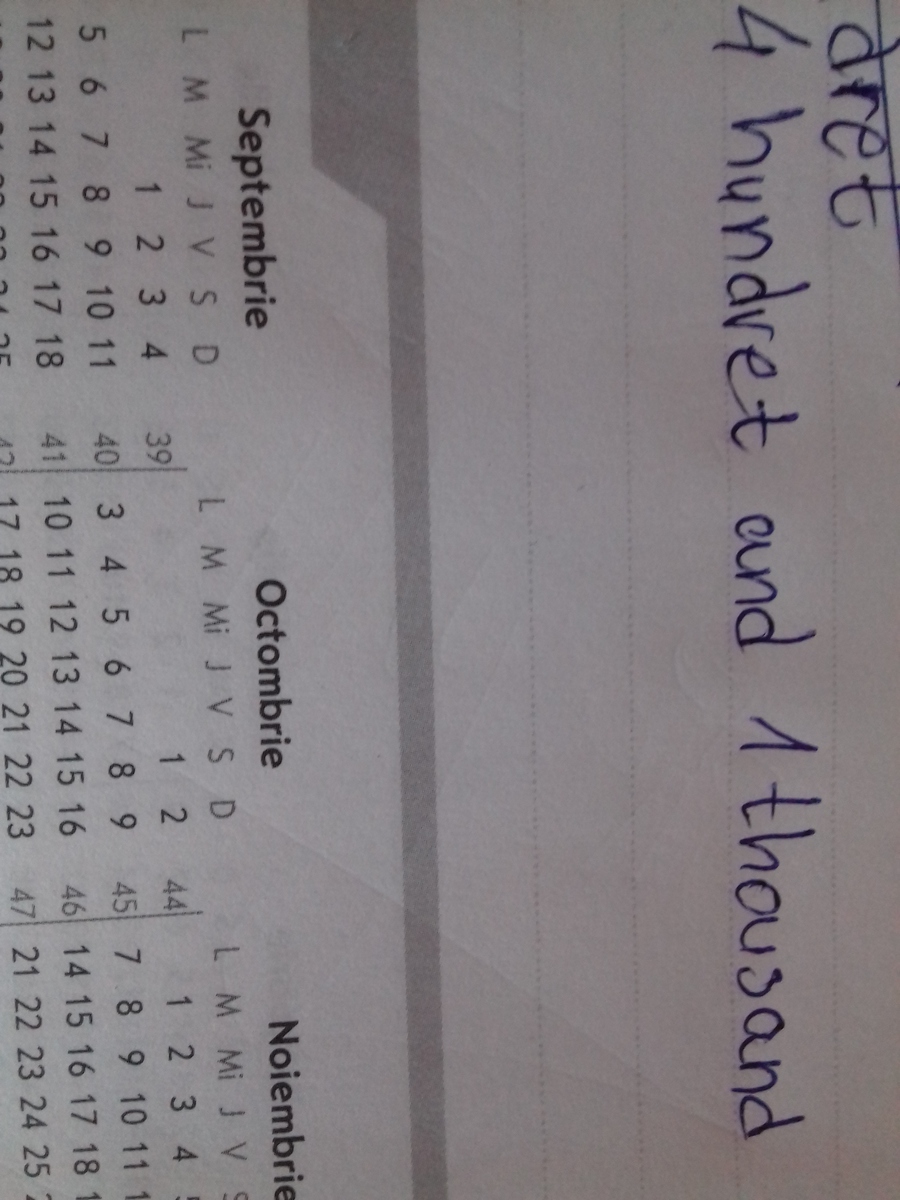 dret
4 hundret and 1 thousand
Septembrie
L M Mi J V S D
1 2 3 4
5 6 7 8 9 10 11
12 13 14 15 16 17 18
Octombrie
L M Mi J V S D
39 1 2
40 3 4 5 6 7 8 9
41 10 11 12 13 14 15 16
42 17 18 19 20 21 22 23
Noiembrie
L M Mi J V
44 1 2 3 4
45 7 8 9 10 11
46 14 15 16 17 18
47 21 22 23 24 25